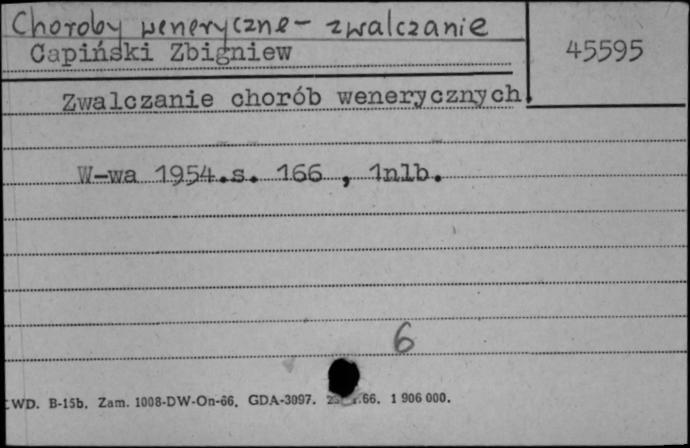 Choroby weneryczne - zwalczanie
Capiński Zbigniew
45595
Zwalczanie chorób wenerycznych.
W-wa 1954.s. 166 , 1nlb.
6
WD. B-15b. Zam. 1008-DW-On-66. GDA-3097. .66. 1 906 000.